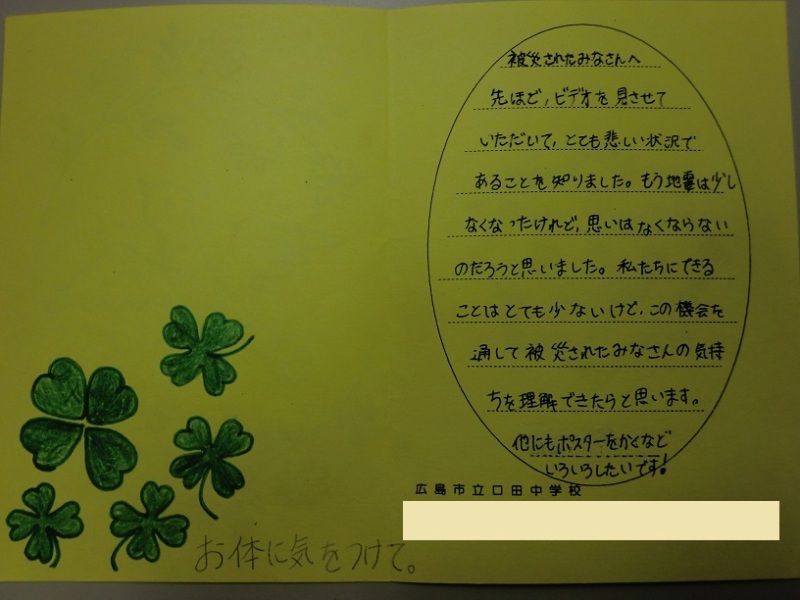 被災されたみなさんへ
先ほど,ビデオを見させて
いただいて,とても悲しい状況で
あることを知りました。もう地震は少し
なくなったけれど,思いはなくならない
のだろうと思いました。私たちにできる
ことはとても少ないけど,この機会を
通して被災されたみなさんの気持
ちを理解できたらと思います。
他にもポスターをかくなど
いろいろしたいです!
広島市立口田中学校
お体に気をつけて。